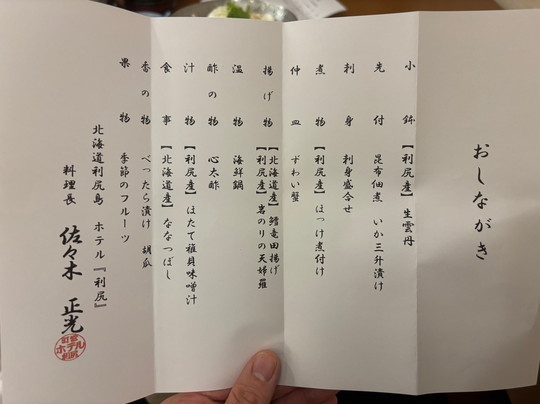 おしながき
小鉢 【利尻産】生雲丹
先付 昆布佃煮 いか三升漬け
刺身 刺身盛合せ
煮物 【利尻産】ほっけ煮付け
仲皿 ずわい蟹
揚げ物 【北海道産】鱈竜田揚げ
【利尻産】岩のりの天婦羅
温物 海鮮鍋
酢の物 心太酢
汁物 【利尻産】ほたて稚貝味噌汁
食事 【北海道産】ななつぼし
香の物 べったら漬け 胡瓜
果物 季節のフルーツ
北海道利尻島 ホテル『利尻』
料理長 佐々木 正光
町営
ホテル
利尻